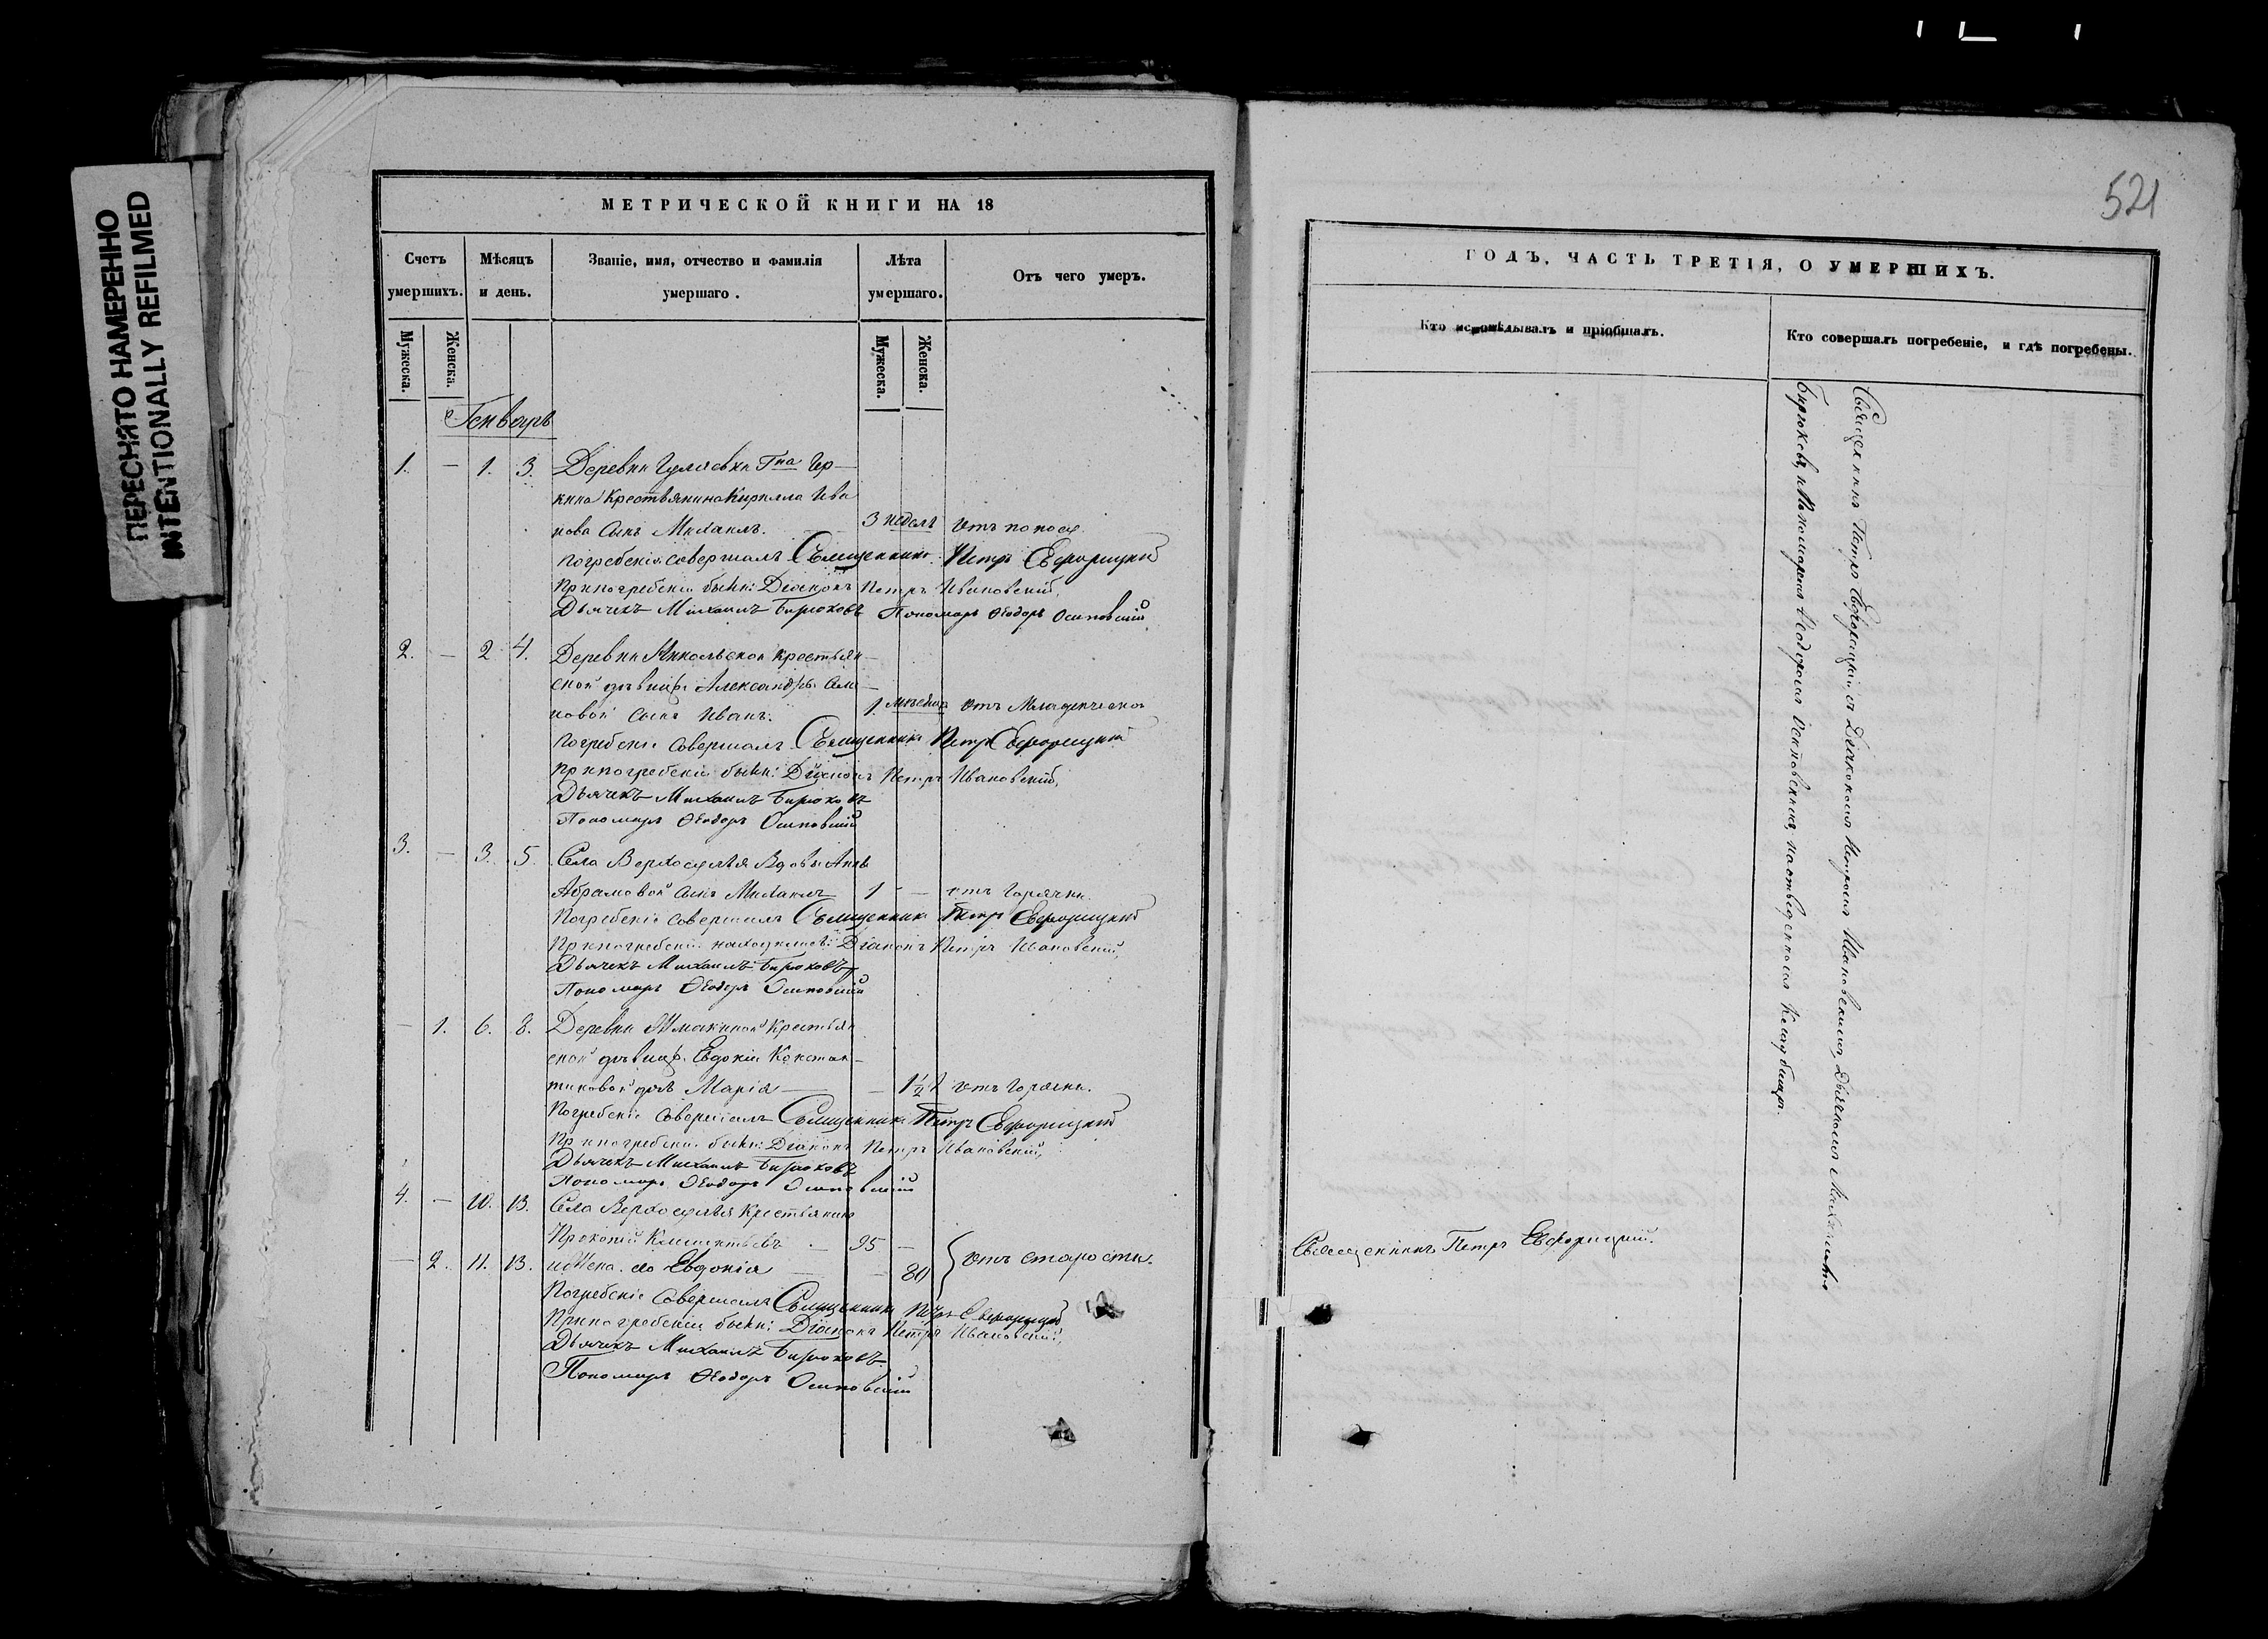 ПЕРЕСНЯТО НАМЕРЕННО
INTENTIONALLY REFILMED
МЕТРИЧЕСКОЙ КНИГИ НА 18
Счетъ умершихъ.
Мѣсяцъ и день.
Званіе, имя, отчество и фамилія умершаго.
Лѣта умершаго.
Отъ чего умеръ.
Мужеска.
Женска.
Мужеска.
Женска.
Генварь
1. — 1. 3. Деревни Гуляевки Гна Чер-
кина Крестьянина Кирилла Ива
нова сынъ Михаилъ. 3 недель отъ поноса
погребеніе совершалъ Священникъ Петръ Евфорицкій
При погребеніи были: Діаконъ Петръ Ивановскій,
Дьячекъ Михаилъ Бирюковъ Пономарь Ѳеодоръ Осиповскій
2. — 2 4. Деревни Никольской крестьян-
ской дѣвицы Александры Сим-
новой сынъ Иванъ. 1. мѣсяца отъ Младенческой
Погребеніе совершалъ Священникъ Петръ Евфорицкій
При погребеніи были: Діаконъ Петръ Ивановскій,
Дьячекъ Михаилъ Бирюковъ
Пономарь Ѳеодоръ Осиповскій
3. — 3. 5. Села Верхоселья Вдовы Анны
Абрамовой сынъ Михаилъ 1 — отъ горячки
Погребеніе совершалъ Священникъ Петръ Евфорицкій
При погребеніи находились: Діаконъ Петръ Ивановскій,
Дьячекъ Михаилъ Бирюковъ,
Пономарь Ѳеодоръ Осиповскій
— 1. 6. 8. Деревни Крестьян
ской дѣвицы Евдокіи Констан-
тиновой дочь Марія — — 1½ отъ горячки.
Погребеніе совершалъ Священникъ Петръ Евфорицкій
При погребеніи были: Діаконъ Петръ Ивановскій,
Дьячекъ Михаилъ Бирюковъ
Пономарь Ѳеодоръ Осиповскій
4. — 10. 13. Села Верхоселья Крестьянинъ
Прокопій Климентьевъ — 95 —
— 2. 11. 13. и Жена его Евдокія — 80 отъ старости.
Погребеніе совершалъ Священникъ Петръ Евфорицкій
При погребеніи были: Діаконъ Петръ Ивановскій,
Дьячекъ Михаилъ Бирюковъ
Пономарь Ѳеодоръ Осиповскій
521
ГОДЪ, ЧАСТЬ ТРЕТІЯ, О УМЕРШИХЪ.
Кто исповѣдывалъ и пріобщалъ.
Кто совершалъ погребеніе, и гдѣ погребены.
Священникъ Петръ Евфорицкій съ Діакономъ Петромъ Ивановскимъ, Дьячкомъ Михаиломъ
Бирюковымъ и Пономаремъ Ѳеодоромъ Осиповскимъ, на отведенномъ Кладбищѣ.
Священникъ Петръ Евфорицкій.